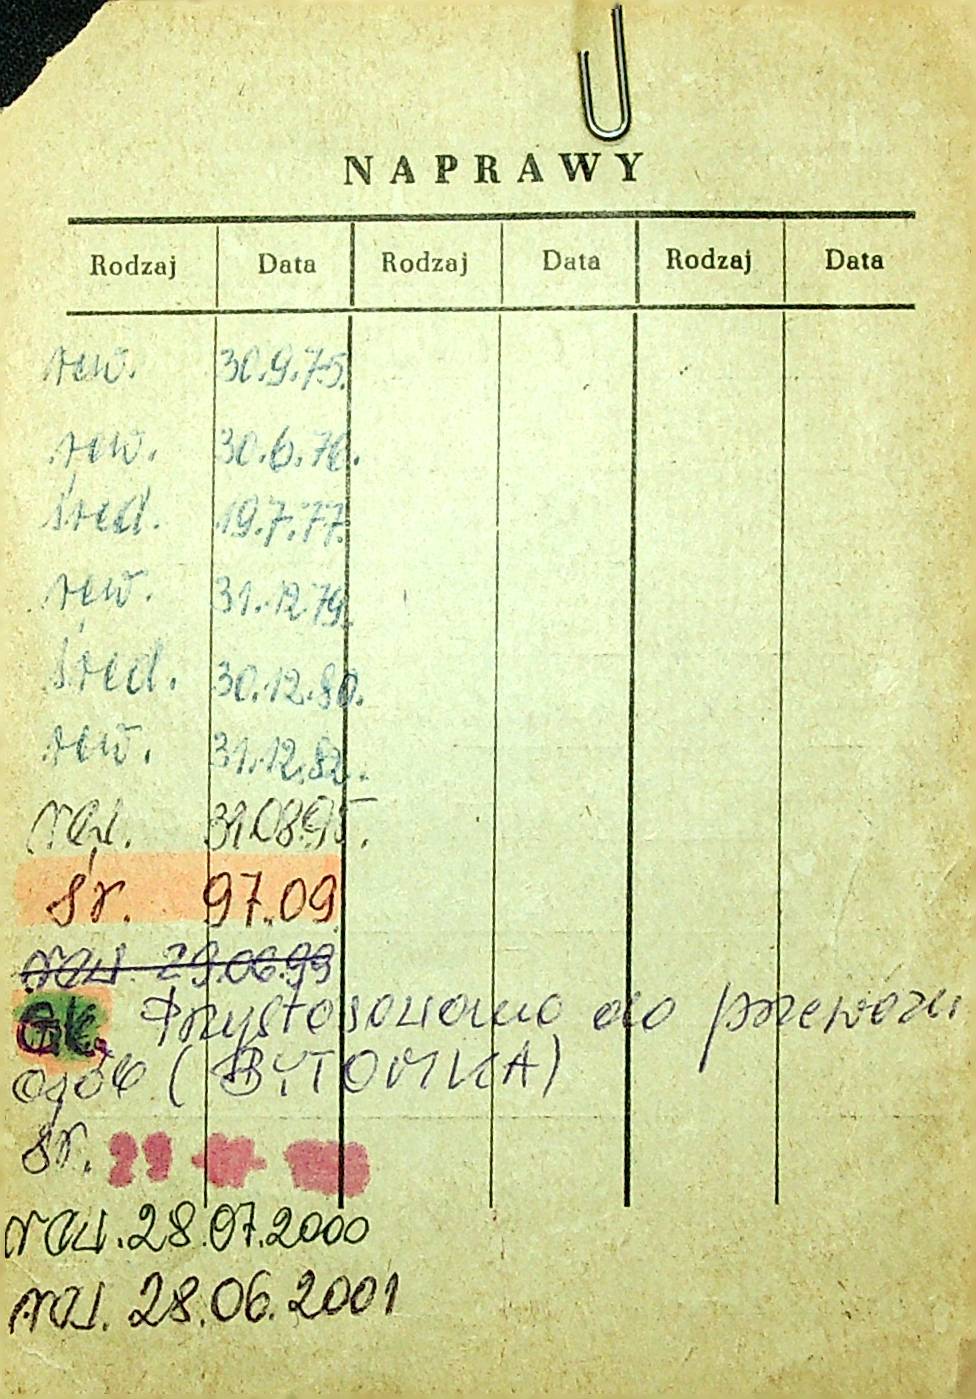 NAPRAWY
Rodzaj Data Rodzaj Data Rodzaj Data
rew. 30.9.75.
rew. 30.6.76.
śred. 19.7.77.
rew. 31.12.79.
śred. 30.12.80.
rew. 31.12.82.
rew. 31.08.95.
śr. 97.09
rew 29.06.99
Gł. Przystosowano do przewozu
osób (BYTOMKA)
śr.
rew. 28.07.2000
rew. 28.06.2001